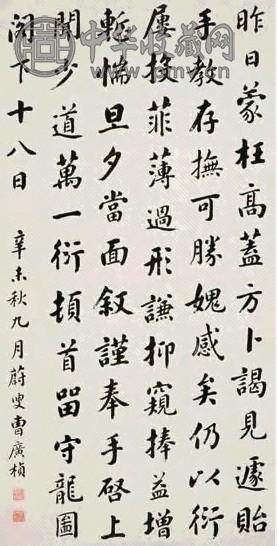 昨日蒙枉高蓋方卜謁見遽貽
手教存撫可勝媿感矣仍以衍
屢投菲薄過形謙抑窺捧益增
慙惴旦夕當面叙謹奉手啓上
聞少道萬一衍頓首留守龍圖
閤下十八日
辛未秋九月蔚叟曹廣楨
中华收藏网